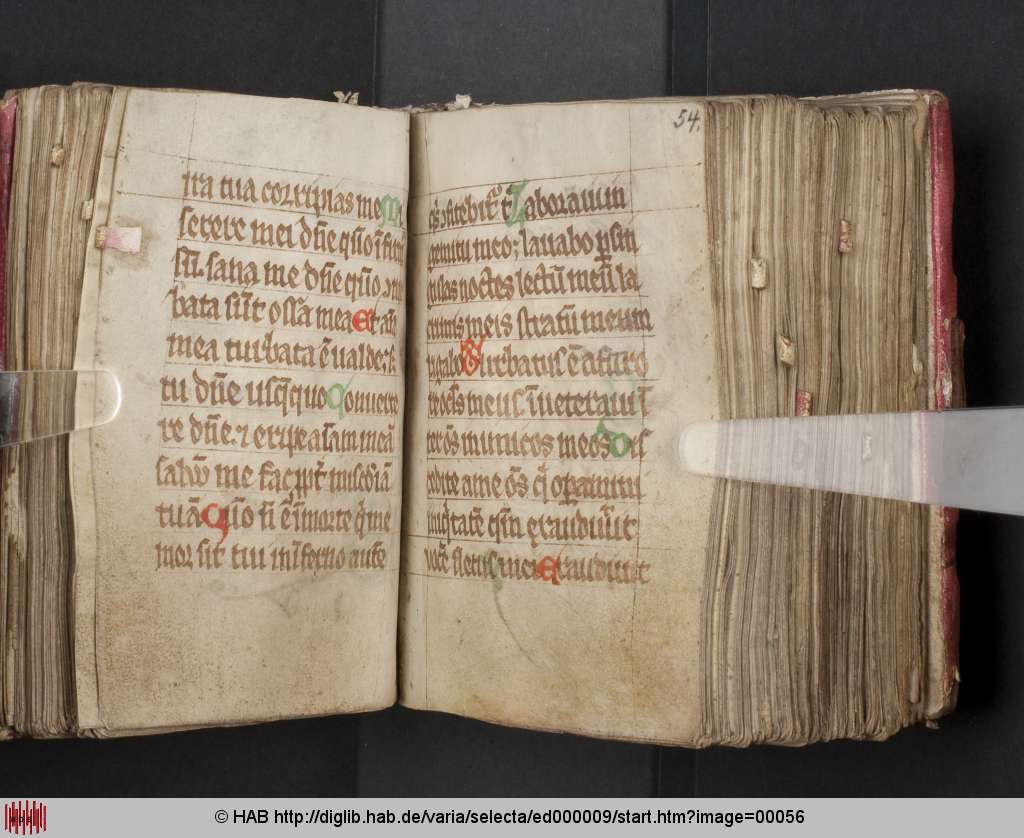 ira tua corripias me Mi
serere mei dñe qm̃ ĩfirm᷒
sũ. sana me dñe qm̃ ↄtur
bata sũt ossa mea Et aĩa
mea turbata ẽ ualde; s;
tu dñe usq̃quo Conuerte
re dñe. ⁊ eripe aĩam meã
saluũ me fac ꝓpt̃ mĩscdiã
tuã Qm̃ ñ ẽ ĩ morte q̃ me
mor sit tui in ĩferno aut̃
54.
q̃s ↄfitebit̃ t̃ Laboraui in
gemitu meo; lauabo ꝑ sin
gulas noctes lectũ meũ la
crimis meis stratũ meum
rigabo Turbatus ẽ a furo
re oc̃ls meus ĩueteraui ĩ
ter õs inimicos meos Dis
cedite a me õs q̃ opamini
iniq̃tatẽ qm̃ exaudiuit
uocẽ fletus mei Exaudiuit
© HAB http://diglib.hab.de/varia/selecta/ed000009/start.htm?image=00056